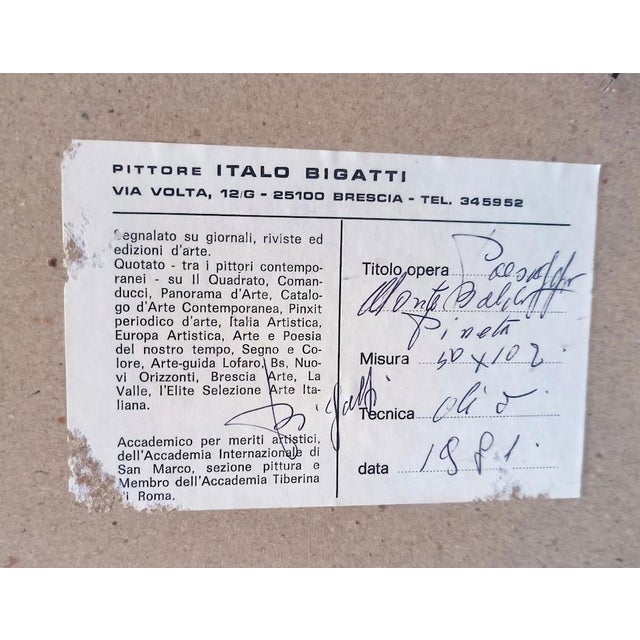 PITTORE ITALO BIGATTI
VIA VOLTA, 12/G - 25100 BRESCIA - TEL. 345952
Segnalato su giornali, riviste ed
edizioni d'arte.
Quotato - tra i pittori contempo-
ranei - su Il Quadrato, Coman-
ducci, Panorama d'Arte, Catalo-
go d'Arte Contemporanea, Pinxit
periodico d'arte, Italia Artistica,
Europa Artistica, Arte e Poesia
del nostro tempo, Segno e Co-
lore, Arte-guida Lofaro, Bs, Nuo-
vi Orizzonti, Brescia Arte, La
Valle, l'Elite Selezione Arte Ita-
liana.
Bigatti
Accademico per meriti artistici,
dell'Accademia Internazionale di
San Marco, sezione pittura e
Membro dell'Accademia Tiberina
di Roma.
Titolo opera Paesaggio
Monte
Pineta
Misura 50 x 102
Tecnica olio
data 1981